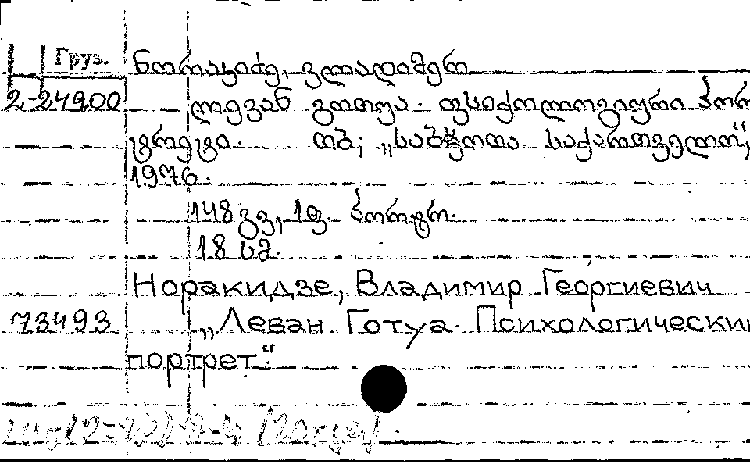 Груз.
ნორაკიძე, ვლადიმერ
2-24900 ლევან გოთუა. ფსიქოლოგიური პორ
ტრეტი. თბ., „საბჭოთა საქართველო“,
1976.
148 გვ., 1 ფ. პორტრ.
18 სმ.
Норакидзе, Владимир Георгиевич
73493 „Леван Готуа. Психологический
портрет“